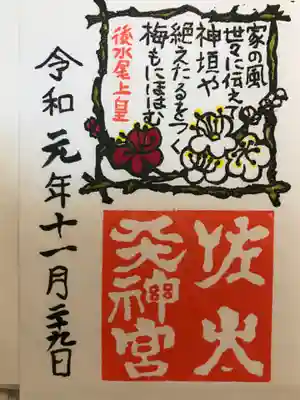 家の風
世々に伝えて
神垣や
絶えたるをつぐ
梅もにほはむ
後水尾上皇
佐太
天神宮
令和元年十一月二十九日